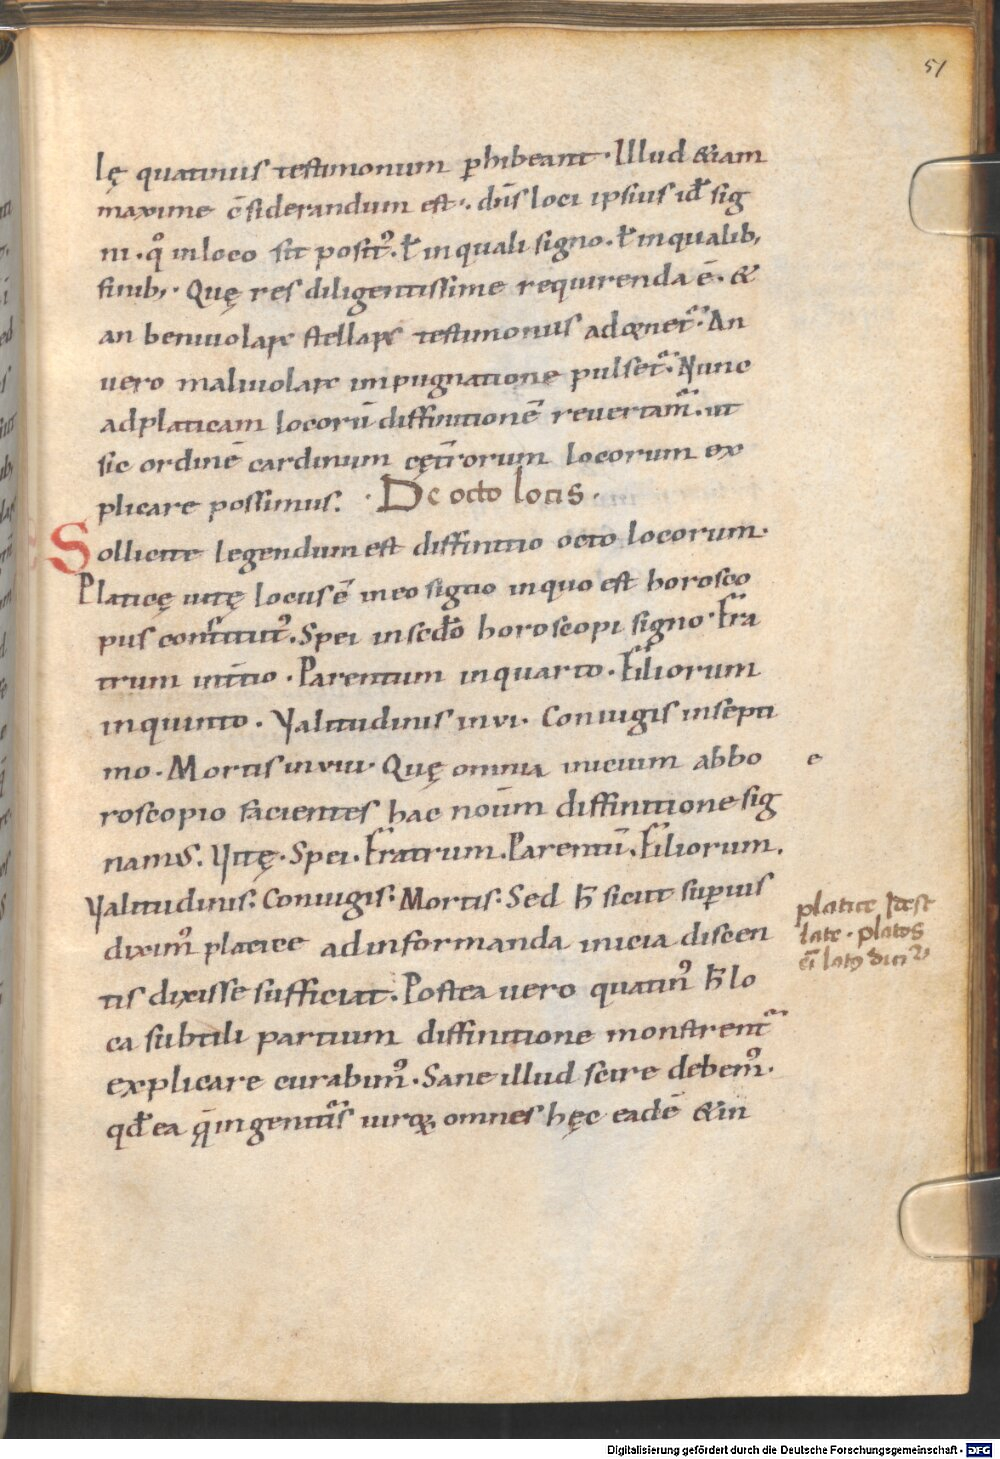 51
lę quatinus testimonium ꝑhibeant. Illud &iam
maxime c̄siderandum est. dn̄s loci ipsius id̄ sig
ni. qͦ in loco sit positꝰ. ł in quali signo. ł in qualib,
finib,. Quę res diligentissime requirenda ē. &
an beniuolaꝝ stellaꝝ testimoniis adornet᷑. An
vero maliuolaꝝ impugnatione pulset᷑. Nunc
ad platicam locorū diffinitionē revertam᷑. ut
sic ordinē cardinum cęt̄rorum locorum ex
plicare possimus. De octo locis.
Sollicite legendum est diffinitio octo locorum.
Platicę vitę locus ē in eo signo in quo est horosco
pus constitutꝰ. Spei in scd̄o horoscopi signo. Fra
trum in tͥtio. Parentum in quarto. Filiorum
in quinto. Valitudinis in vi. Coniugis in septi
mo. Mortis in viii. Quę omnia inicium ab ho
roscopio facientes hac noīum diffinitione sig
namus. Vitę. Spei. Fratrum. Parentū. Filiorum.
Valitudinis. Coniugis. Mortis. Sed h̄ sicut suꝑius
diximꝰ platice ad informanda inicia discen
tis dixisse sufficiat. Postea vero quatinꝰ h̄ lo
ca subtili partium diffinitione monstrent᷑
explicare curabimꝰ. Sane illud scire debemꝰ.
qd̄ ea q̄ in genituris uiroꝝ omnes hęc eadē & in
e
platice idest
late. platos
ei latꝰ dicit᷑
Digitalisierung gefördert durch die Deutsche Forschungsgemeinschaft - DFG